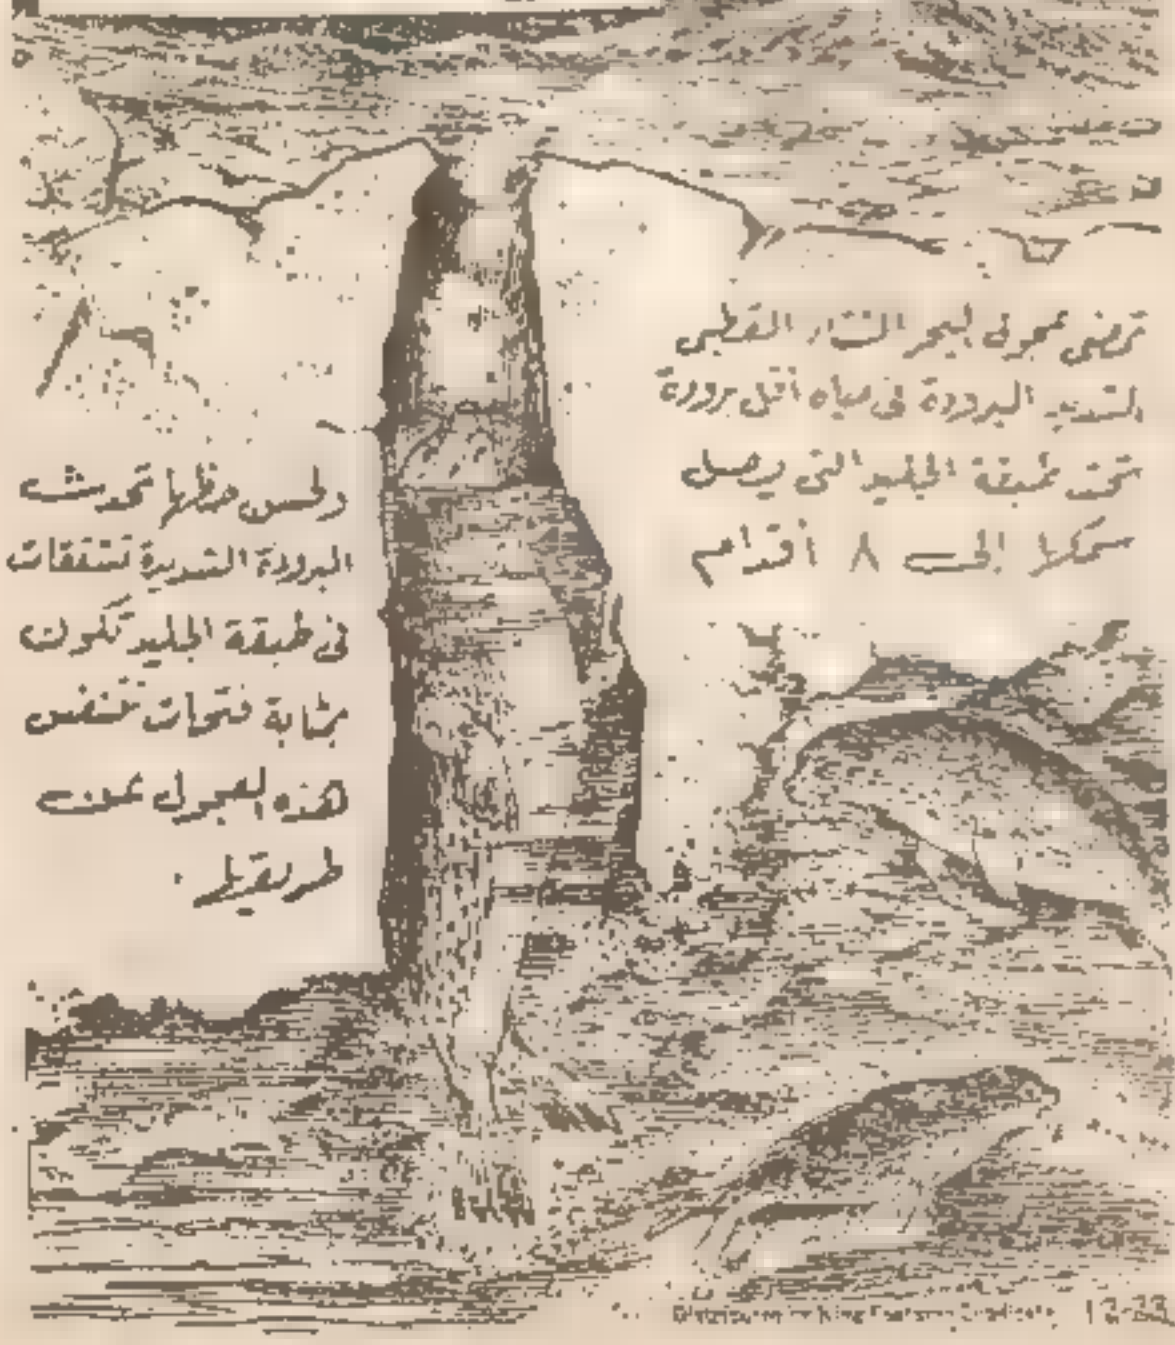 تمضى عجول البحر الشتاء القطبى
الشديد البرودة فى مياه أقل برودة
تحت طبقة الجليد التى يصل
سمكها إلى ٨ أقدام
ولحسن حظها تحدث
البرودة الشديدة تشققات
فى طبقة الجليد تكون
بمثابة فتحات تتنفس
هذه العجول عن
طريقها .
Distributed by King Features Syndicate 12-23